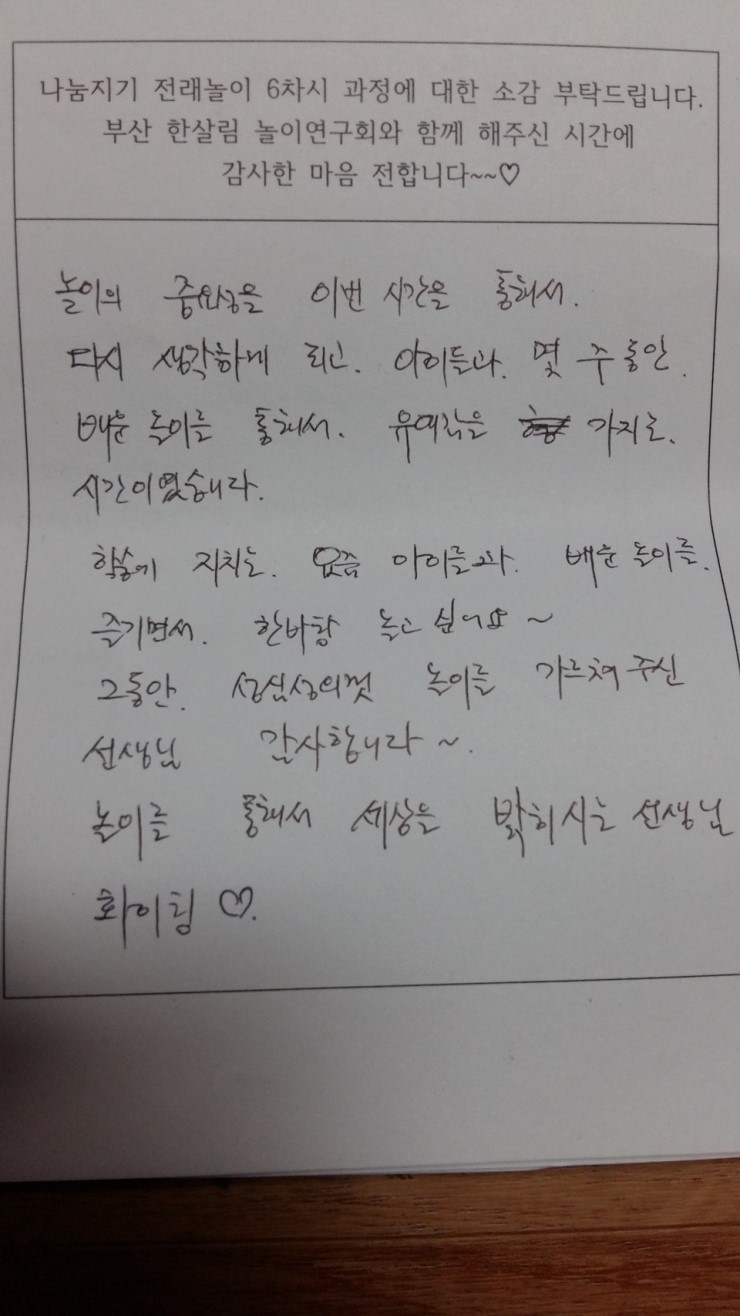 나눔지기 전래놀이 6차시 과정에 대한 소감 부탁드립니다.
부산 한살림 놀이연구회와 함께 해주신 시간에
감사한 마음 전합니다~~♡
놀이의 중요성을 이번 시간을 통해서.
다시 생각하게 되고. 아이들과. 몇 주 동안.
배운 놀이를 통해서. 유여함을 가지는.
시간이였습니다.
학습에 지치는. 요즘 아이들과. 배운 놀이를.
즐기면서. 한바탕 놀고 싶어요~
그동안. 성심성의껏 놀이를 가르쳐 주신
선생님 감사합니다~.
놀이를 통해서 세상을 밝히시는 선생님
화이팅 ♡.